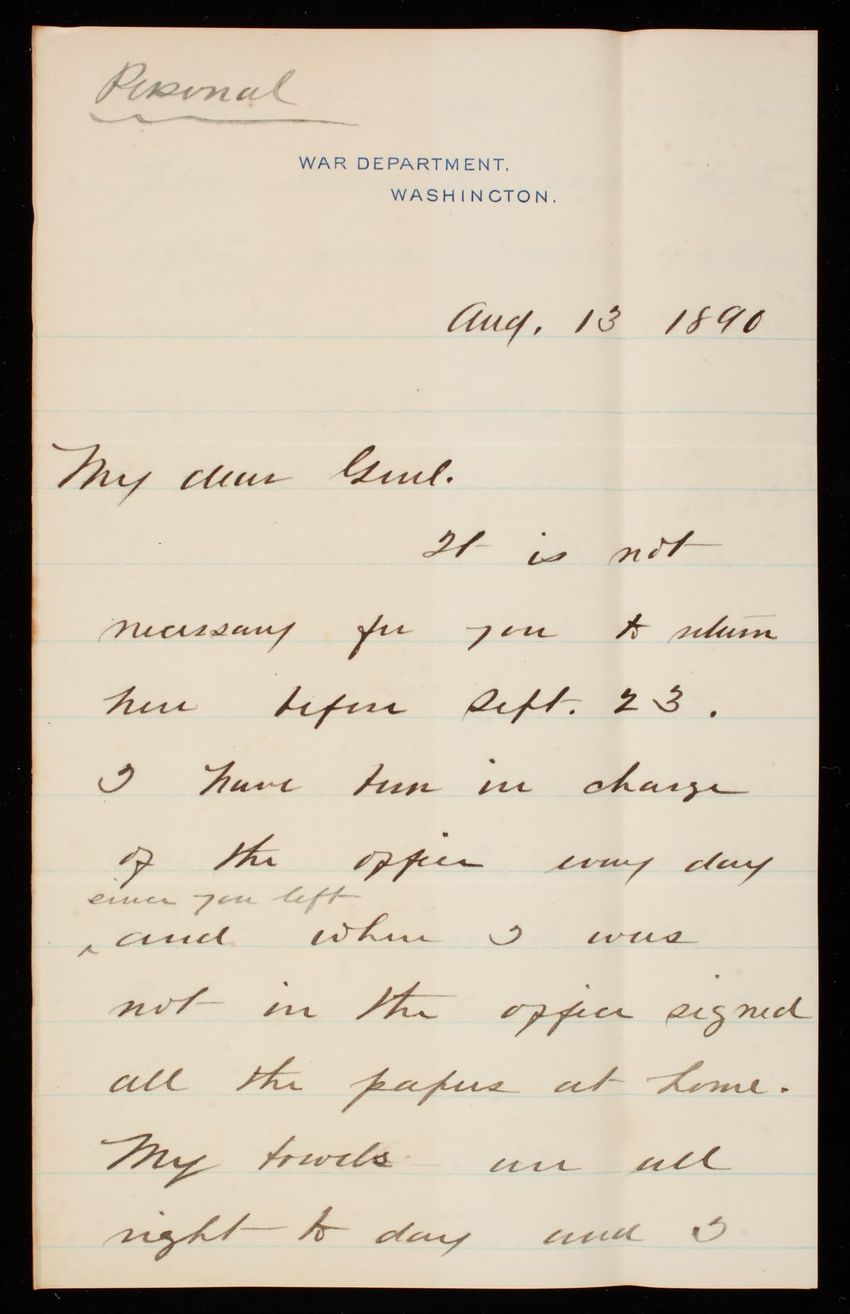 Personal
WAR DEPARTMENT,
WASHINGTON.
Aug. 13 1890
My dear Genl.
It is not
necessary for you to return
here before Sept. 23.
I have been in charge
of the office every day
since you left
and when I was
not in the office signed
all the papers at home.
My bowels are all
right to day and I